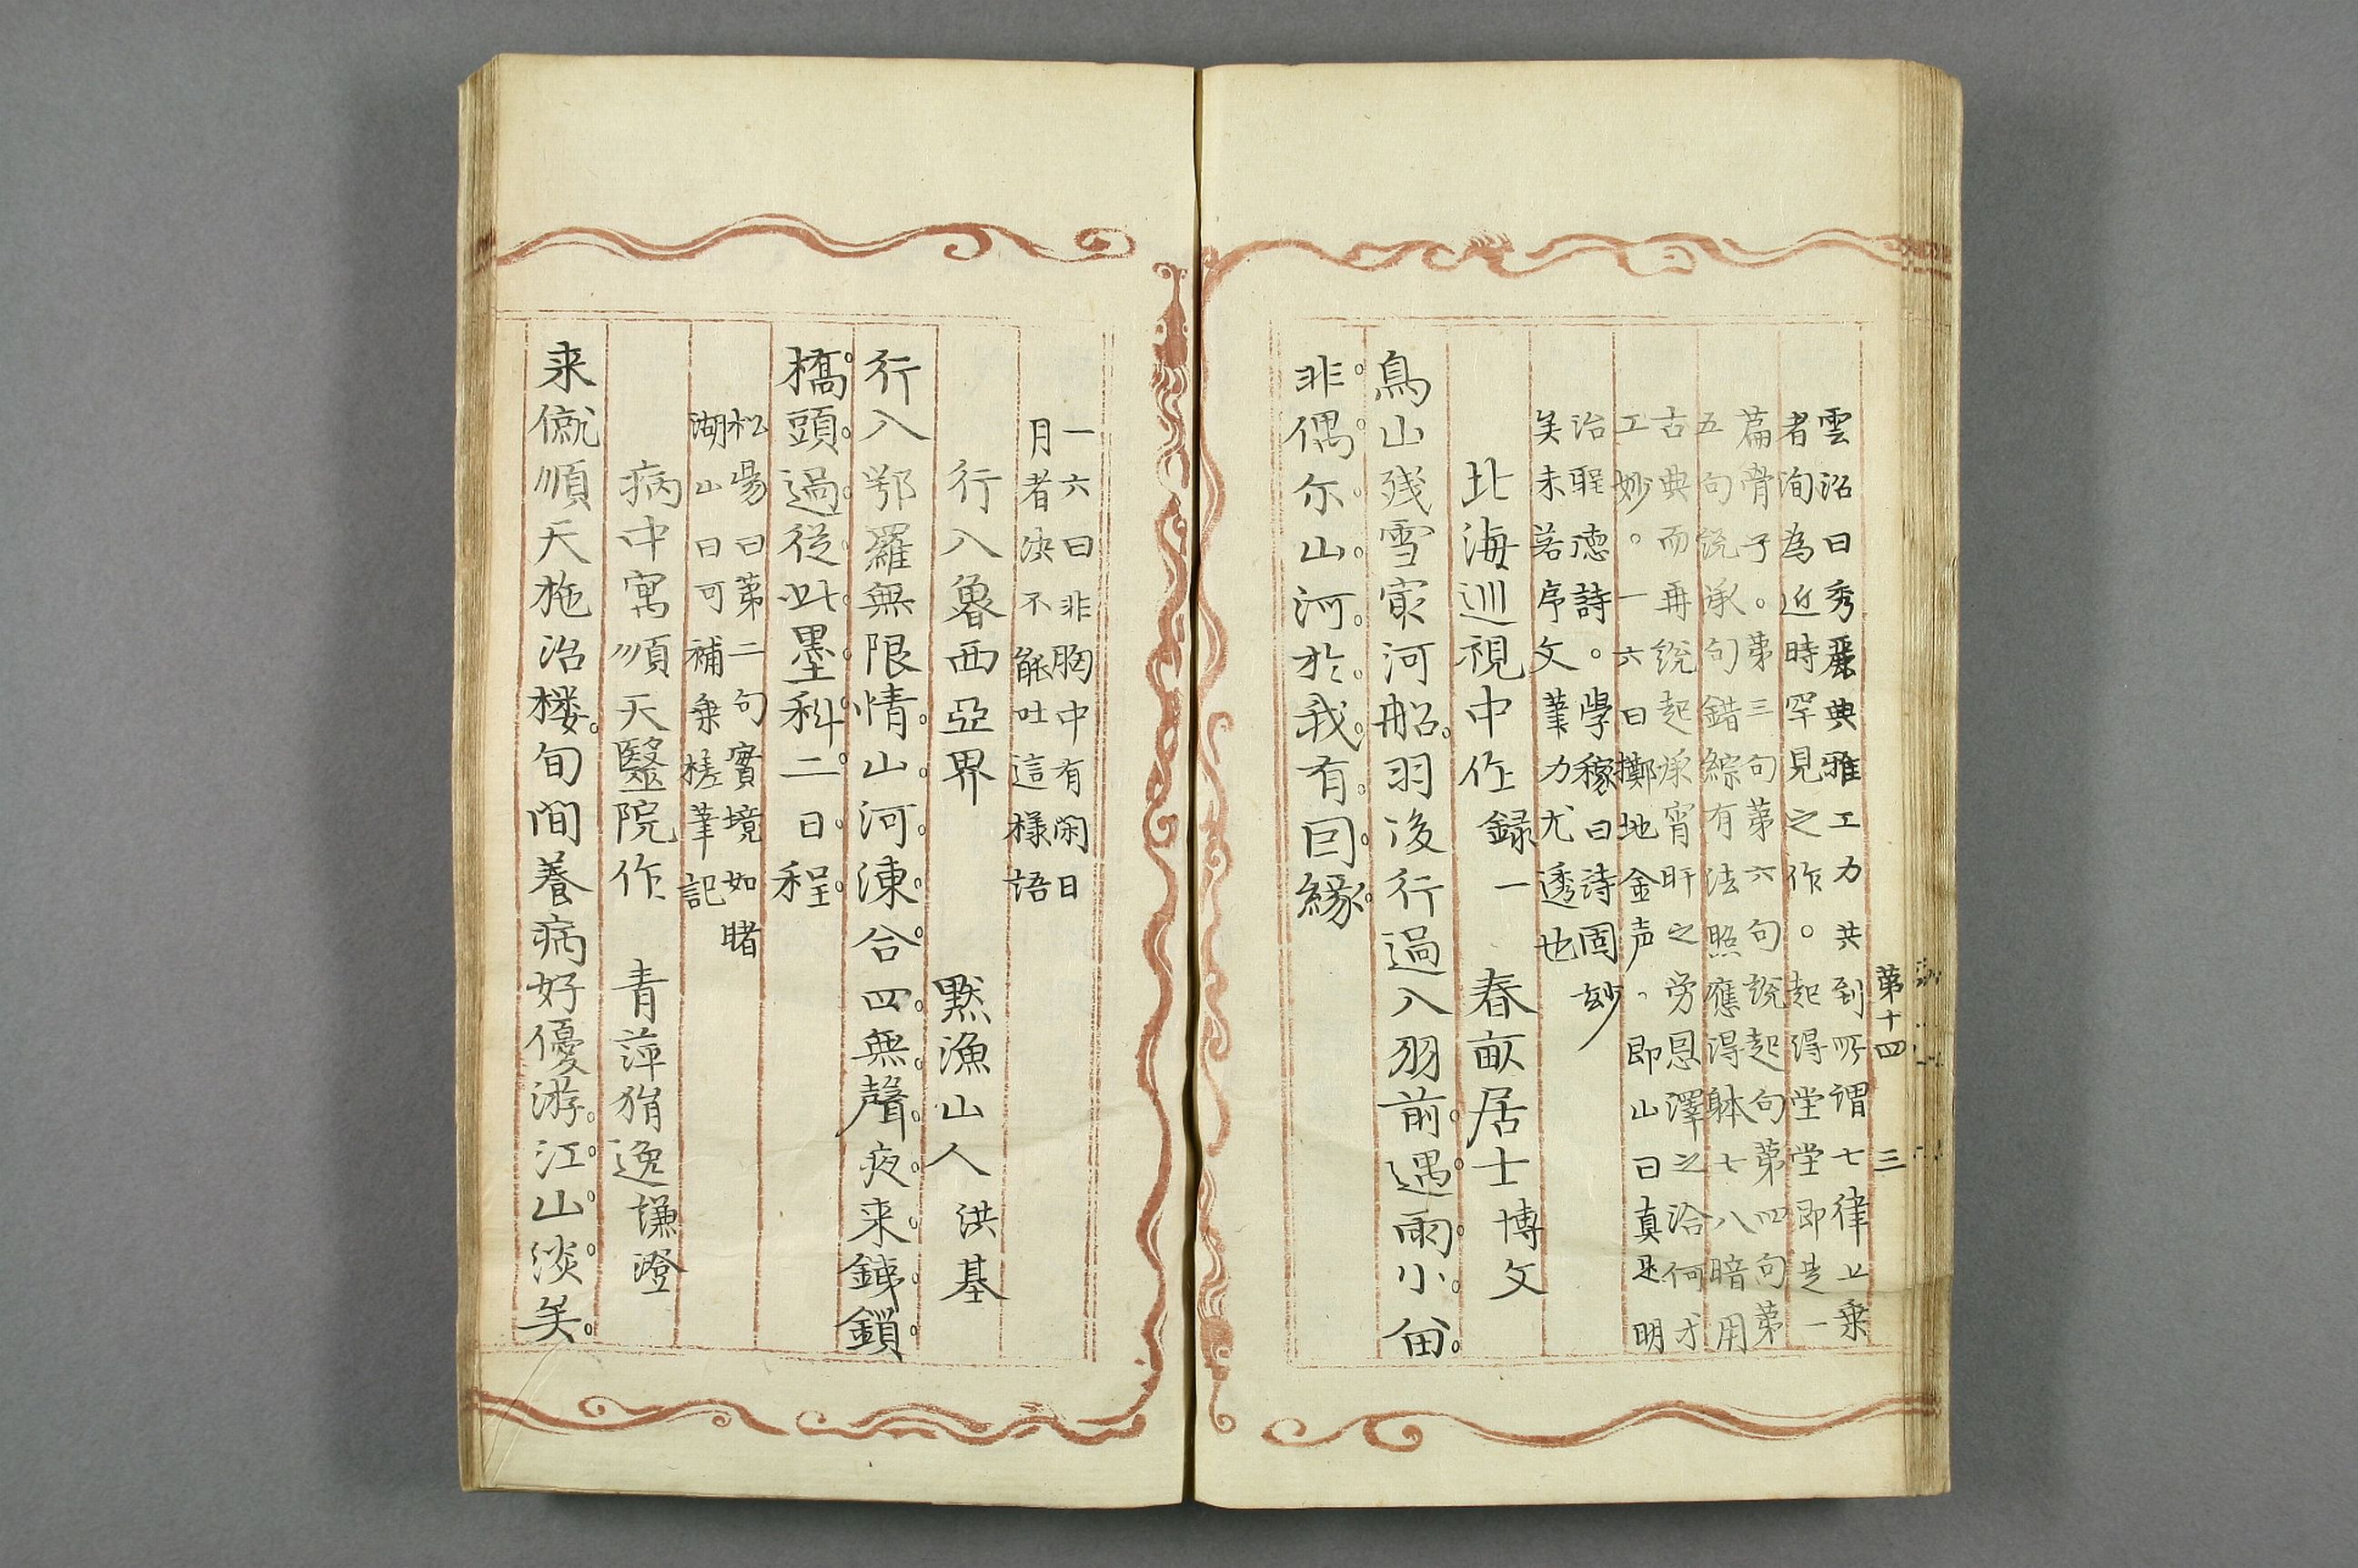 第十四 三
雲沼曰秀麗典雅工力共到所謂七律上乗
者洵為近時罕見之作。起得堂堂即是一
篇骨子。第三句第六句説起句第四句第
五句説承句錯綜有法照應得躰七八暗用
古典而再統起承宵旰之労恩澤之洽何才
工妙。一六曰擲地金声、即山曰真是明
治聖德詩。學稼曰诗固妙
矣未若序文葦力尤透也
北海巡視中作 録一 春畝居士 博文
鳥山残雪最河船。羽後行過入羽前。遇雨小留
非偶尓。山河於我有因縁。
一六曰非胸中有閑日
月者决不能吐這様語
行入魯西亞界 黙漁山人 洪基
行入鄂羅無限情。山河凍合四無聲。夜来鉄鎖
橋頭過。從此墨科二日程。
松塲曰第二句實境如睹
湖山曰可補乗槎筆記
病中寓順天醫院作 青萍狷逸 謙澄
来僦順天施治楼。旬間養病好優游。江山淡矣